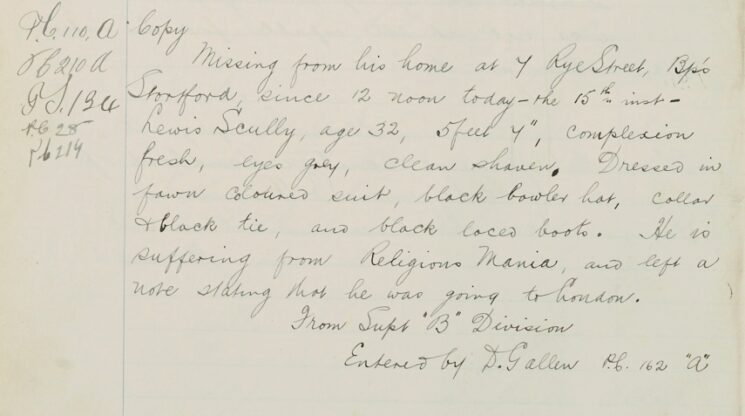 P.C. 110, A
PC 210 A
P.S. 134
P.C. 25
P.C 214
Copy
Missing from his home at 7 Rye Street, Bp's
Stortford, since 12 noon today - the 15th inst -
Lewis Scully, age 32, 5 feet 7", complexion
fresh, eyes grey, clean shaven. Dressed in
fawn coloured suit, black bowler hat, collar
& black tie, and black laced boots. He is
suffering from Religious Mania, and left a
note stating that he was going to London.
From Supt "B" Division
Entered by D. Gallen P.C. 162 "A"